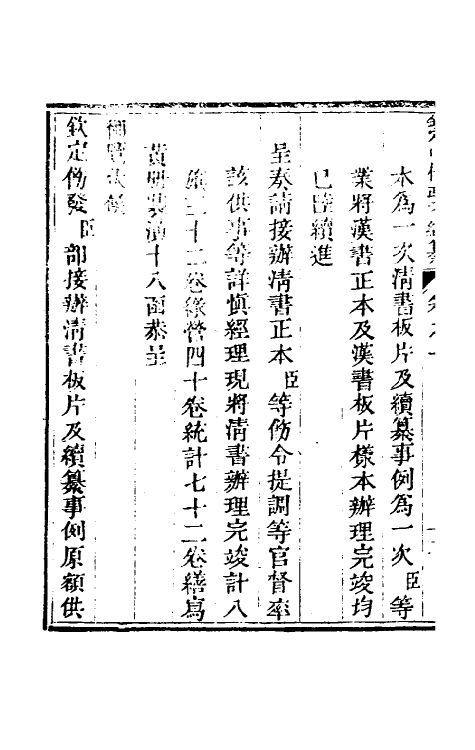 本為一次清書板片及續纂事例為一次臣等
業將漢書正本及漢書板片樣本辦理完竣均
已陸續進
呈奏請接辦清書正本臣等仿令提調等官督率
該供事等詳慎經理現將清書辦理完竣計八
旗三十二卷綠營四十卷統計七十二卷繕寫
黃冊裝潢十八函恭呈
御覽恭候
欽定飭發臣部接辦清書板片及續纂事例原額供